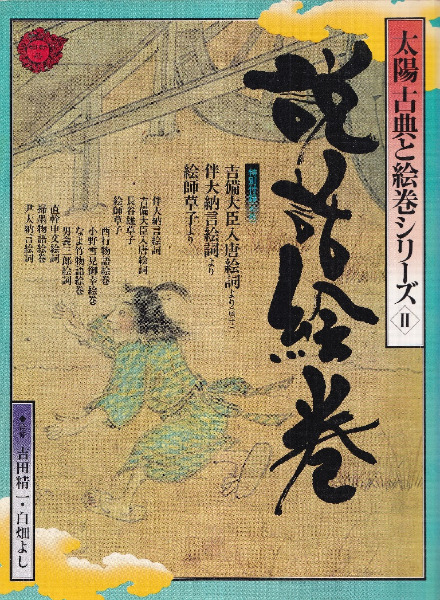 太陽 古典と絵巻シリーズ II
説話絵巻
吉備大臣入唐絵詞より
伴大納言絵詞より
絵師草子より
伴大納言絵詞
吉備大臣入唐絵詞
長谷雄草子
絵師草子
西行物語絵巻
小野雪見御幸絵巻
なよ竹物語絵巻
男衾三郎絵詞
直幹申文絵詞
掃墨物語絵巻
尹大納言絵詞
吉田精一・白畑よし